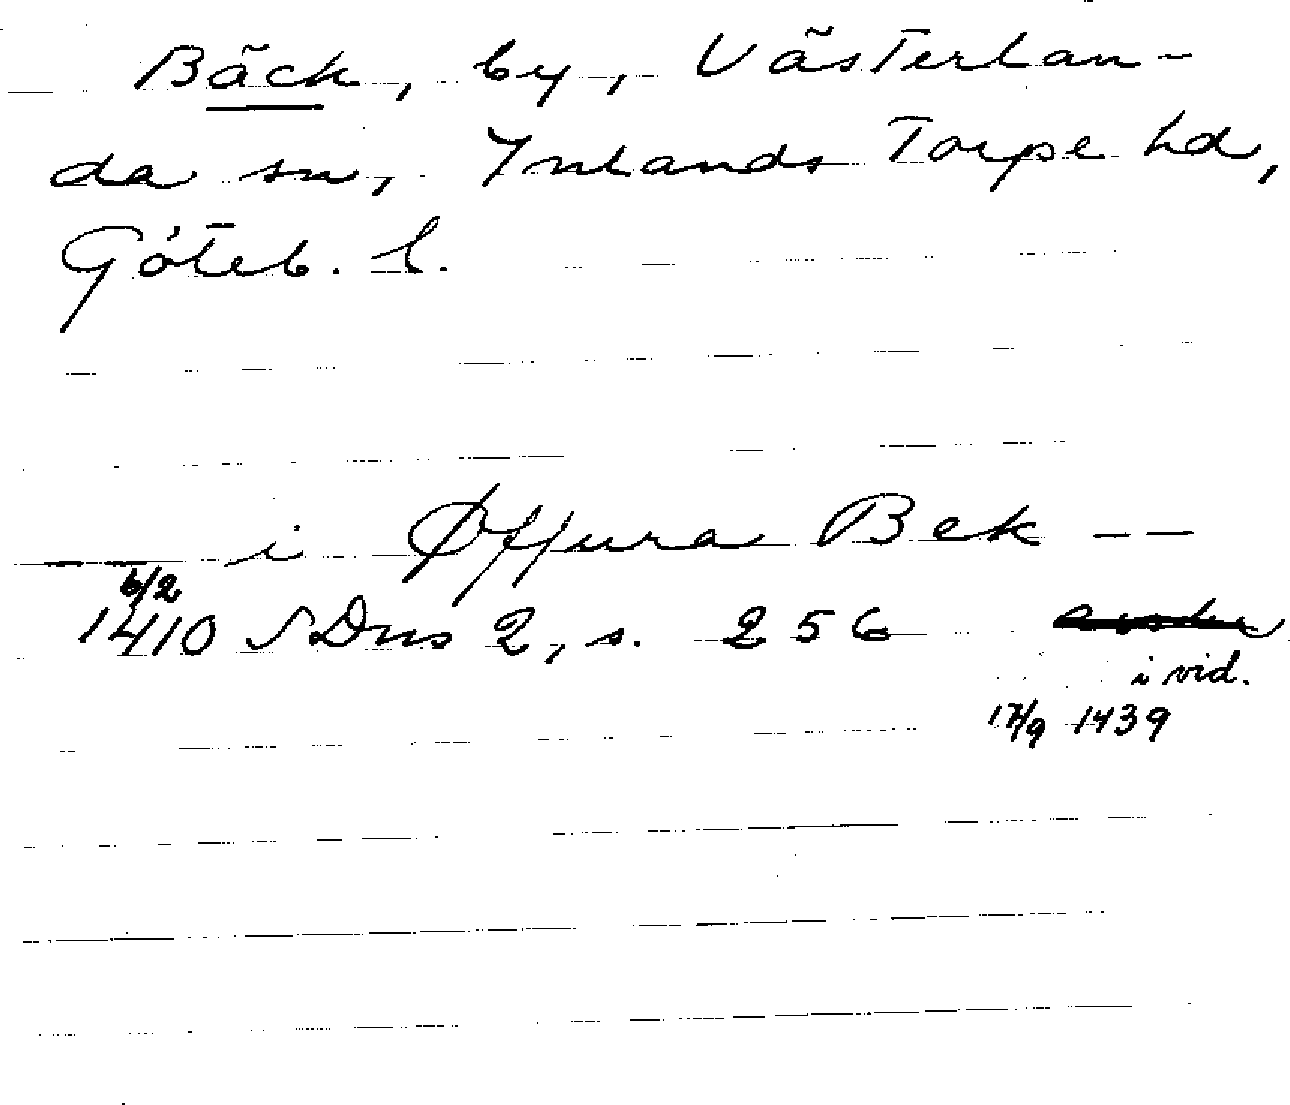 Bäck, by, Västerlan-
da sn, Inlands Torpe hd,
Göteb. l.
i Øffura Bek --
6/2
1410 SDns 2, s. 256
i vid.
17/9 1439